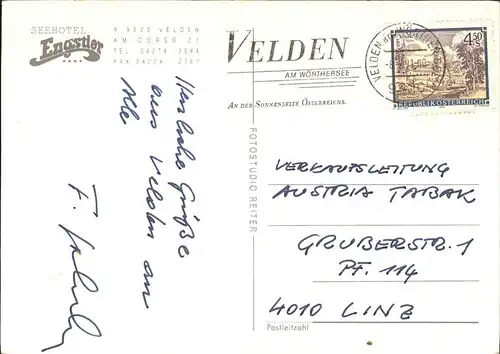 SEEHOTEL
Engstler
A 9220 VELDEN
AM CORSO 21
TEL 04274 2644
FAX 04274
VELDEN
AM WÖRTHERSEE
AN DER SONNENSEITE ÖSTERREICHS.
VELDEN
4.50
S
REPUBLIK ÖSTERREICH
FOTOSTUDIO REITER
Herzliche Grüße
aus Velden an
Alle
F.
VERKAUFSLEITUNG
AUSTRIA TABAK
GRUBERSTR. 1
PF. 114
4010 LINZ
Postleitzahl